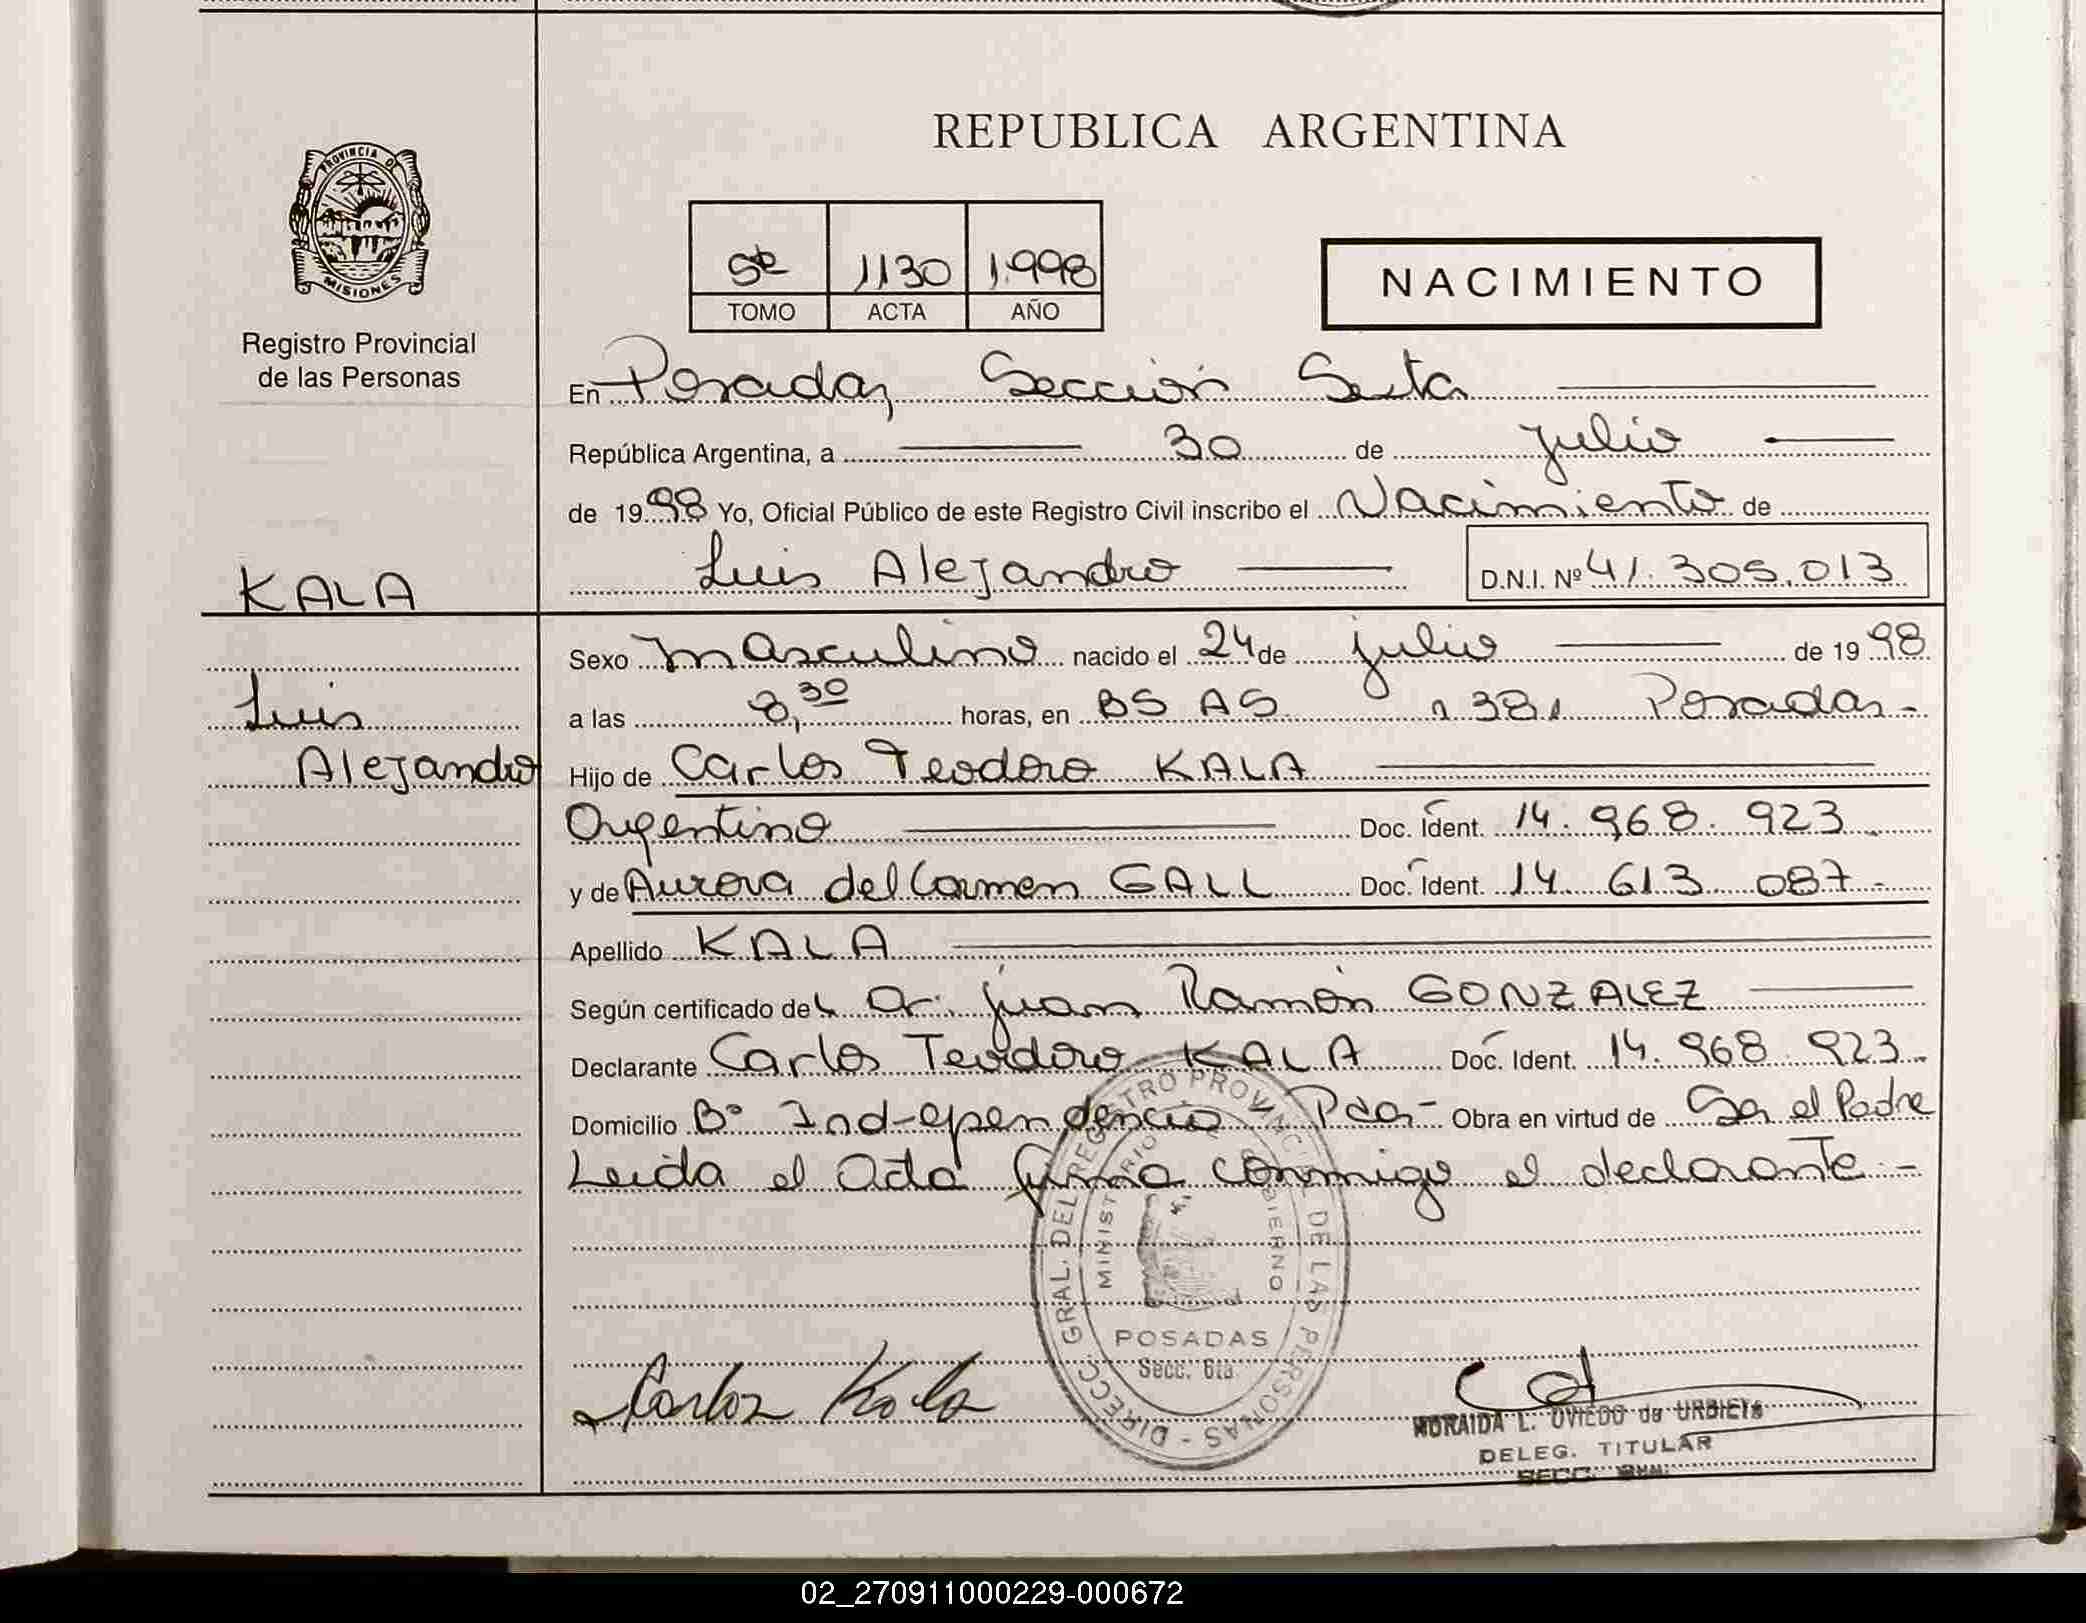 REPUBLICA ARGENTINA
PROVINCIA DE
MISIONES
Registro Provincial
de las Personas
5to 1130 1.998
TOMO ACTA AÑO
NACIMIENTO
En Posadas, Sección Sexta
República Argentina, a 30 de julio
de 1998 Yo, Oficial Público de este Registro Civil inscribo el Nacimiento de
Luis Alejandro D.N.I. Nº 41.305.013
KALA
Luis
Alejandro
Sexo masculino nacido el 24 de julio de 1998
a las 8,30 horas, en BS AS 381 Posadas-
Hijo de Carlos Teodoro KALA
Argentino Doc. Ident. 14.968.923
y de Aurora del Carmen GALL Doc. Ident. 14 613 087-
Apellido KALA
Según certificado del Dr. Juan Ramón GONZALEZ
Declarante Carlos Teodoro KALA Doc. Ident. 14.968.923.
Domicilio Bº Independencia Pdas- Obra en virtud de Ser el Padre
Leida el Acta firma conmigo el declarante-
DIRECC. GRAL. DEL REGISTRO PROVINCIAL DE LAS PERSONAS -
MINISTERIO GOBIERNO
POSADAS
Secc. 6ta
Carlos Kala
MORAIDA L. OVIEDO de URBIETA
DELEG. TITULAR
SECC.
02_270911000229-000672